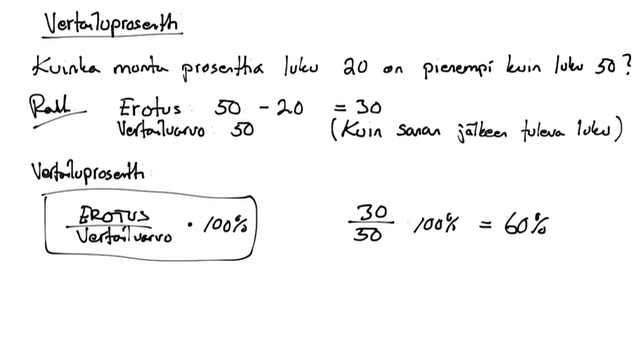 Vertailuprosentti
Kuinka monta prosenttia luku 20 on pienempi kuin luku 50?
Ratk Erotus: 50 - 20 = 30
Vertailuarvo 50 (Kuin sanan jälkeen tuleva luku)
Vertailuprosentti
EROTUS / Vertailuarvo · 100% 30 / 50 100% = 60%